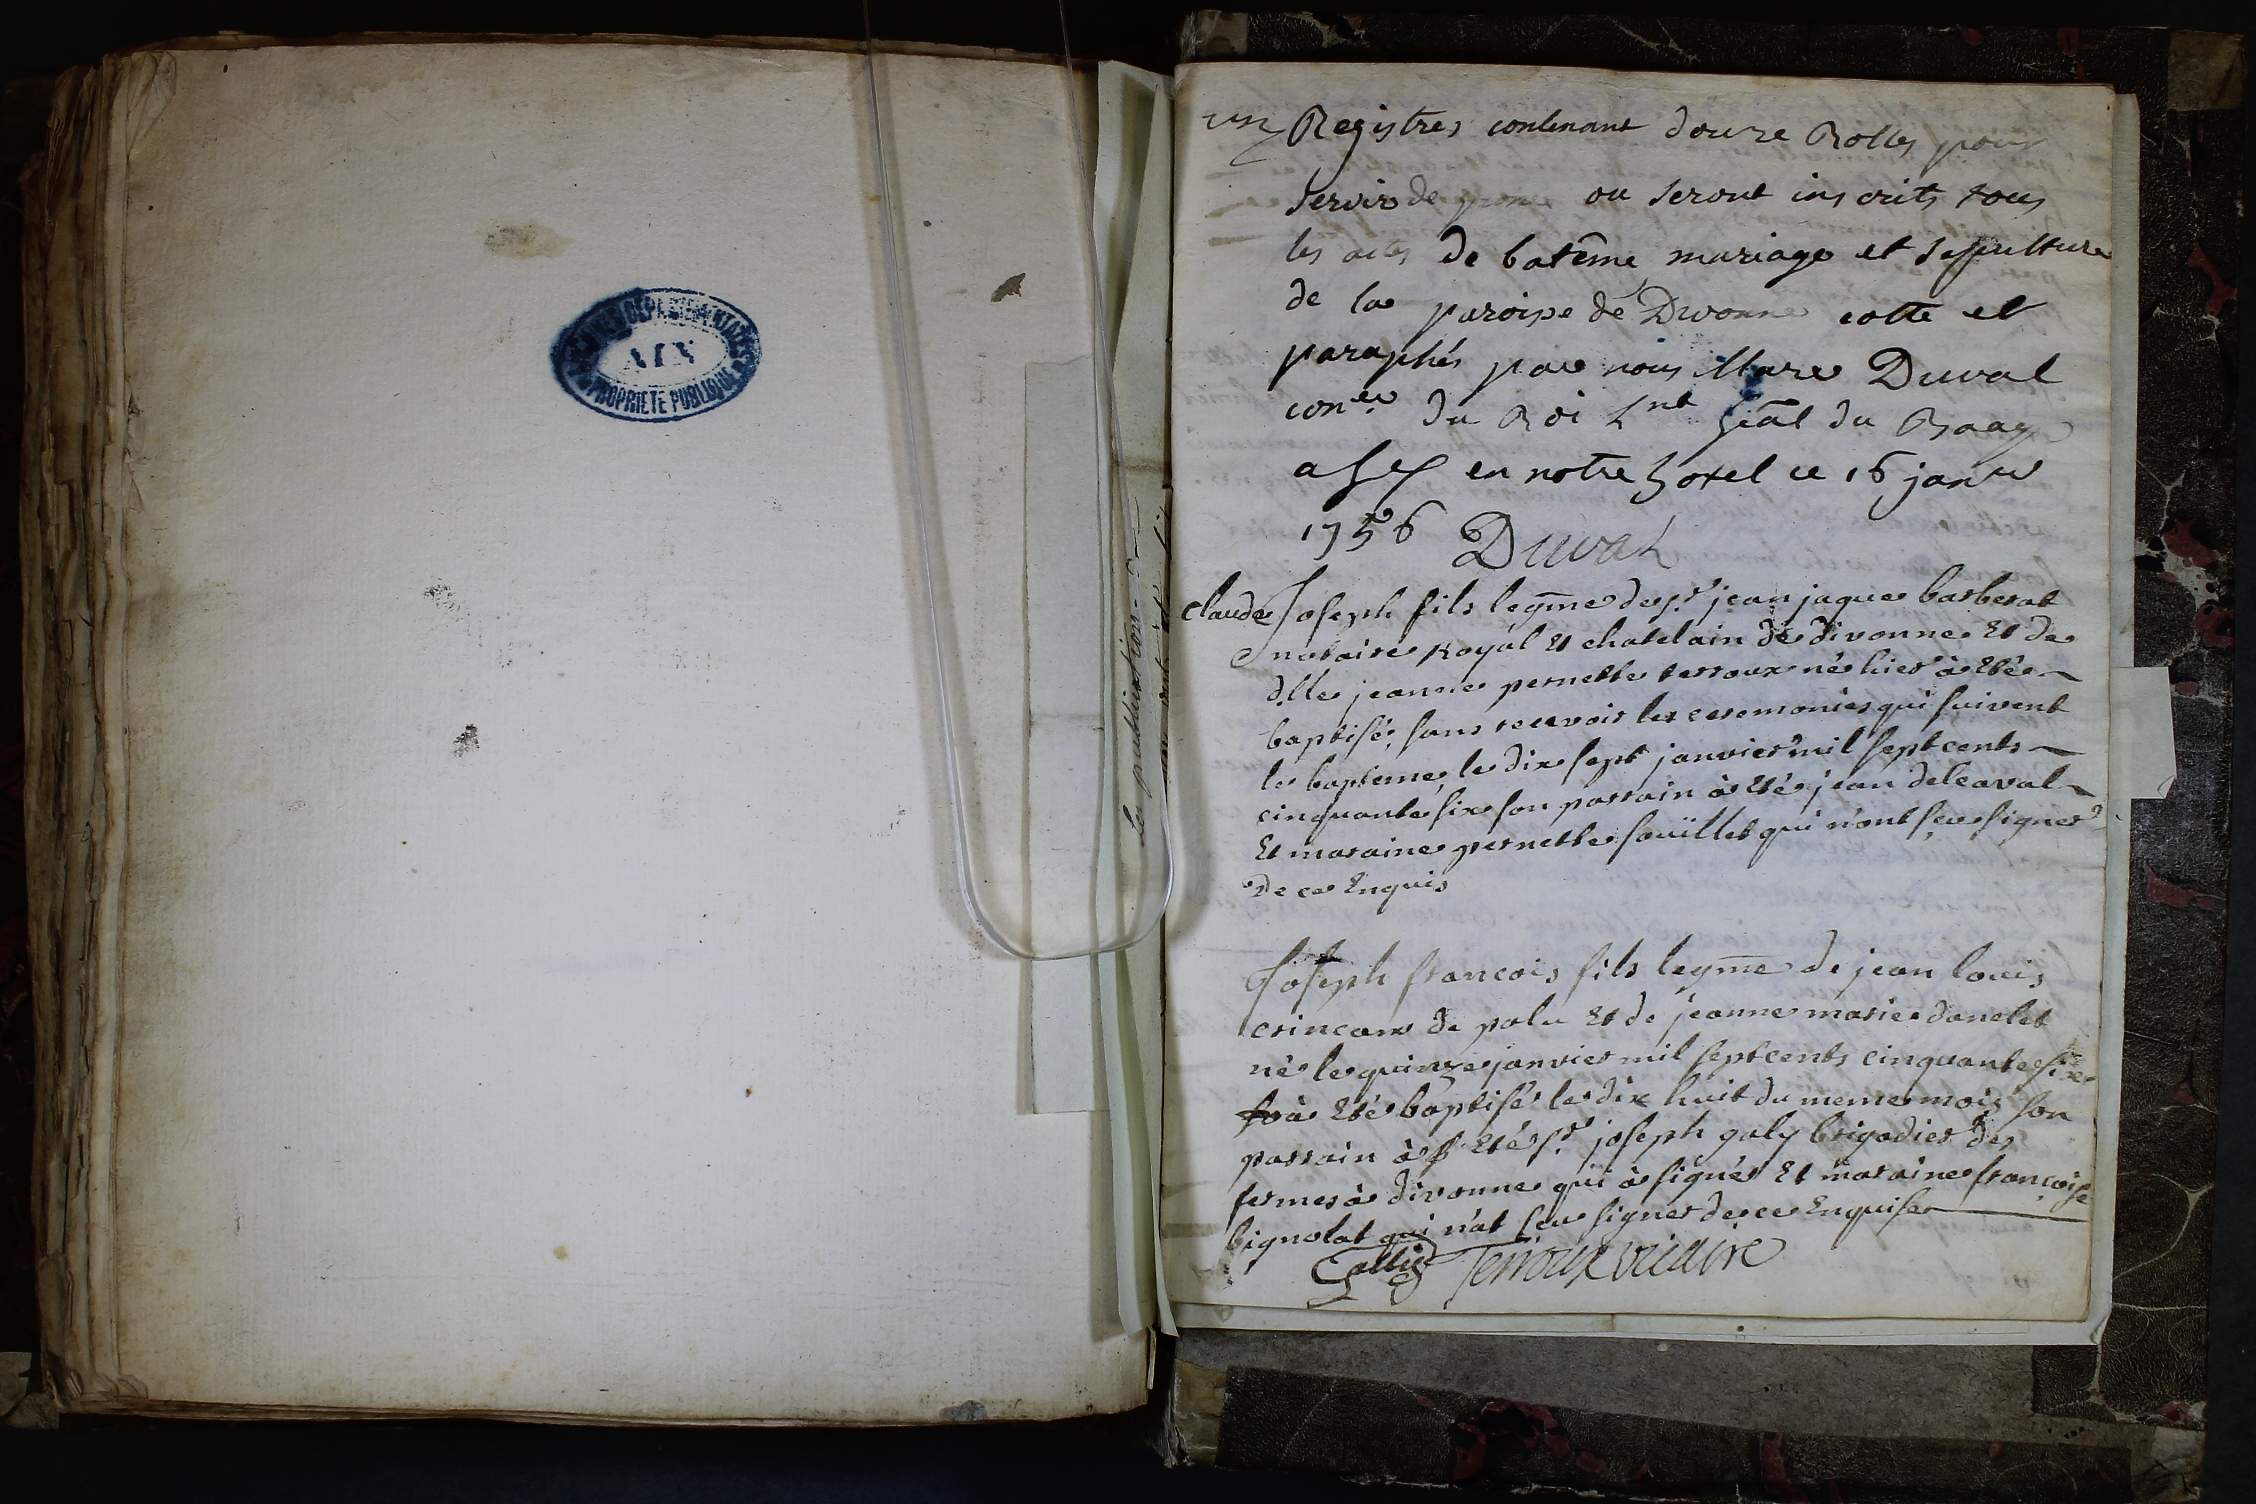 ARCHIVES DEPARTEMENTALES
AIN
PROPRIETE PUBLIQUE
les publications
un Registres contenant douze Rolles pour
servir de ou seront inscrits tous
les actes de batême mariage et sepulture
de la paroisse de Divonne cotte et
paraphés par nous Marc Duval
con.er du Roi L.nt Gñal du Baage
a Gex en notre hotel ce 16 janer
1756 Duval
claude Joseph fils legme de sr jean jaque barberat
notaire Royal Et chatelain de divonne Et de
dlle jeanne pernette terroux né hier à Eté
baptisé, sans recevoir les ceremonies qui suivent
le bapteme, le dix sept janvier mil sept cents
cinquante six son parrain à Eté jean delcaval
Et maraine pernette fouillet qui n'ont sçu signer
de ce Enquis
Joseph francois fils legme de jean louis
crincam de polu Et de jeanne marie danclet
né le quinze janvier mil septcents cinquante six
à Eté baptisé le dix huit du meme mois son
parrain à Eté sr. joseph galy brigadier des
fermes à divonne qui à signé Et maraine françoise
bignolat qui n'at sçu signer de ce Enquise
Terroux vicaire